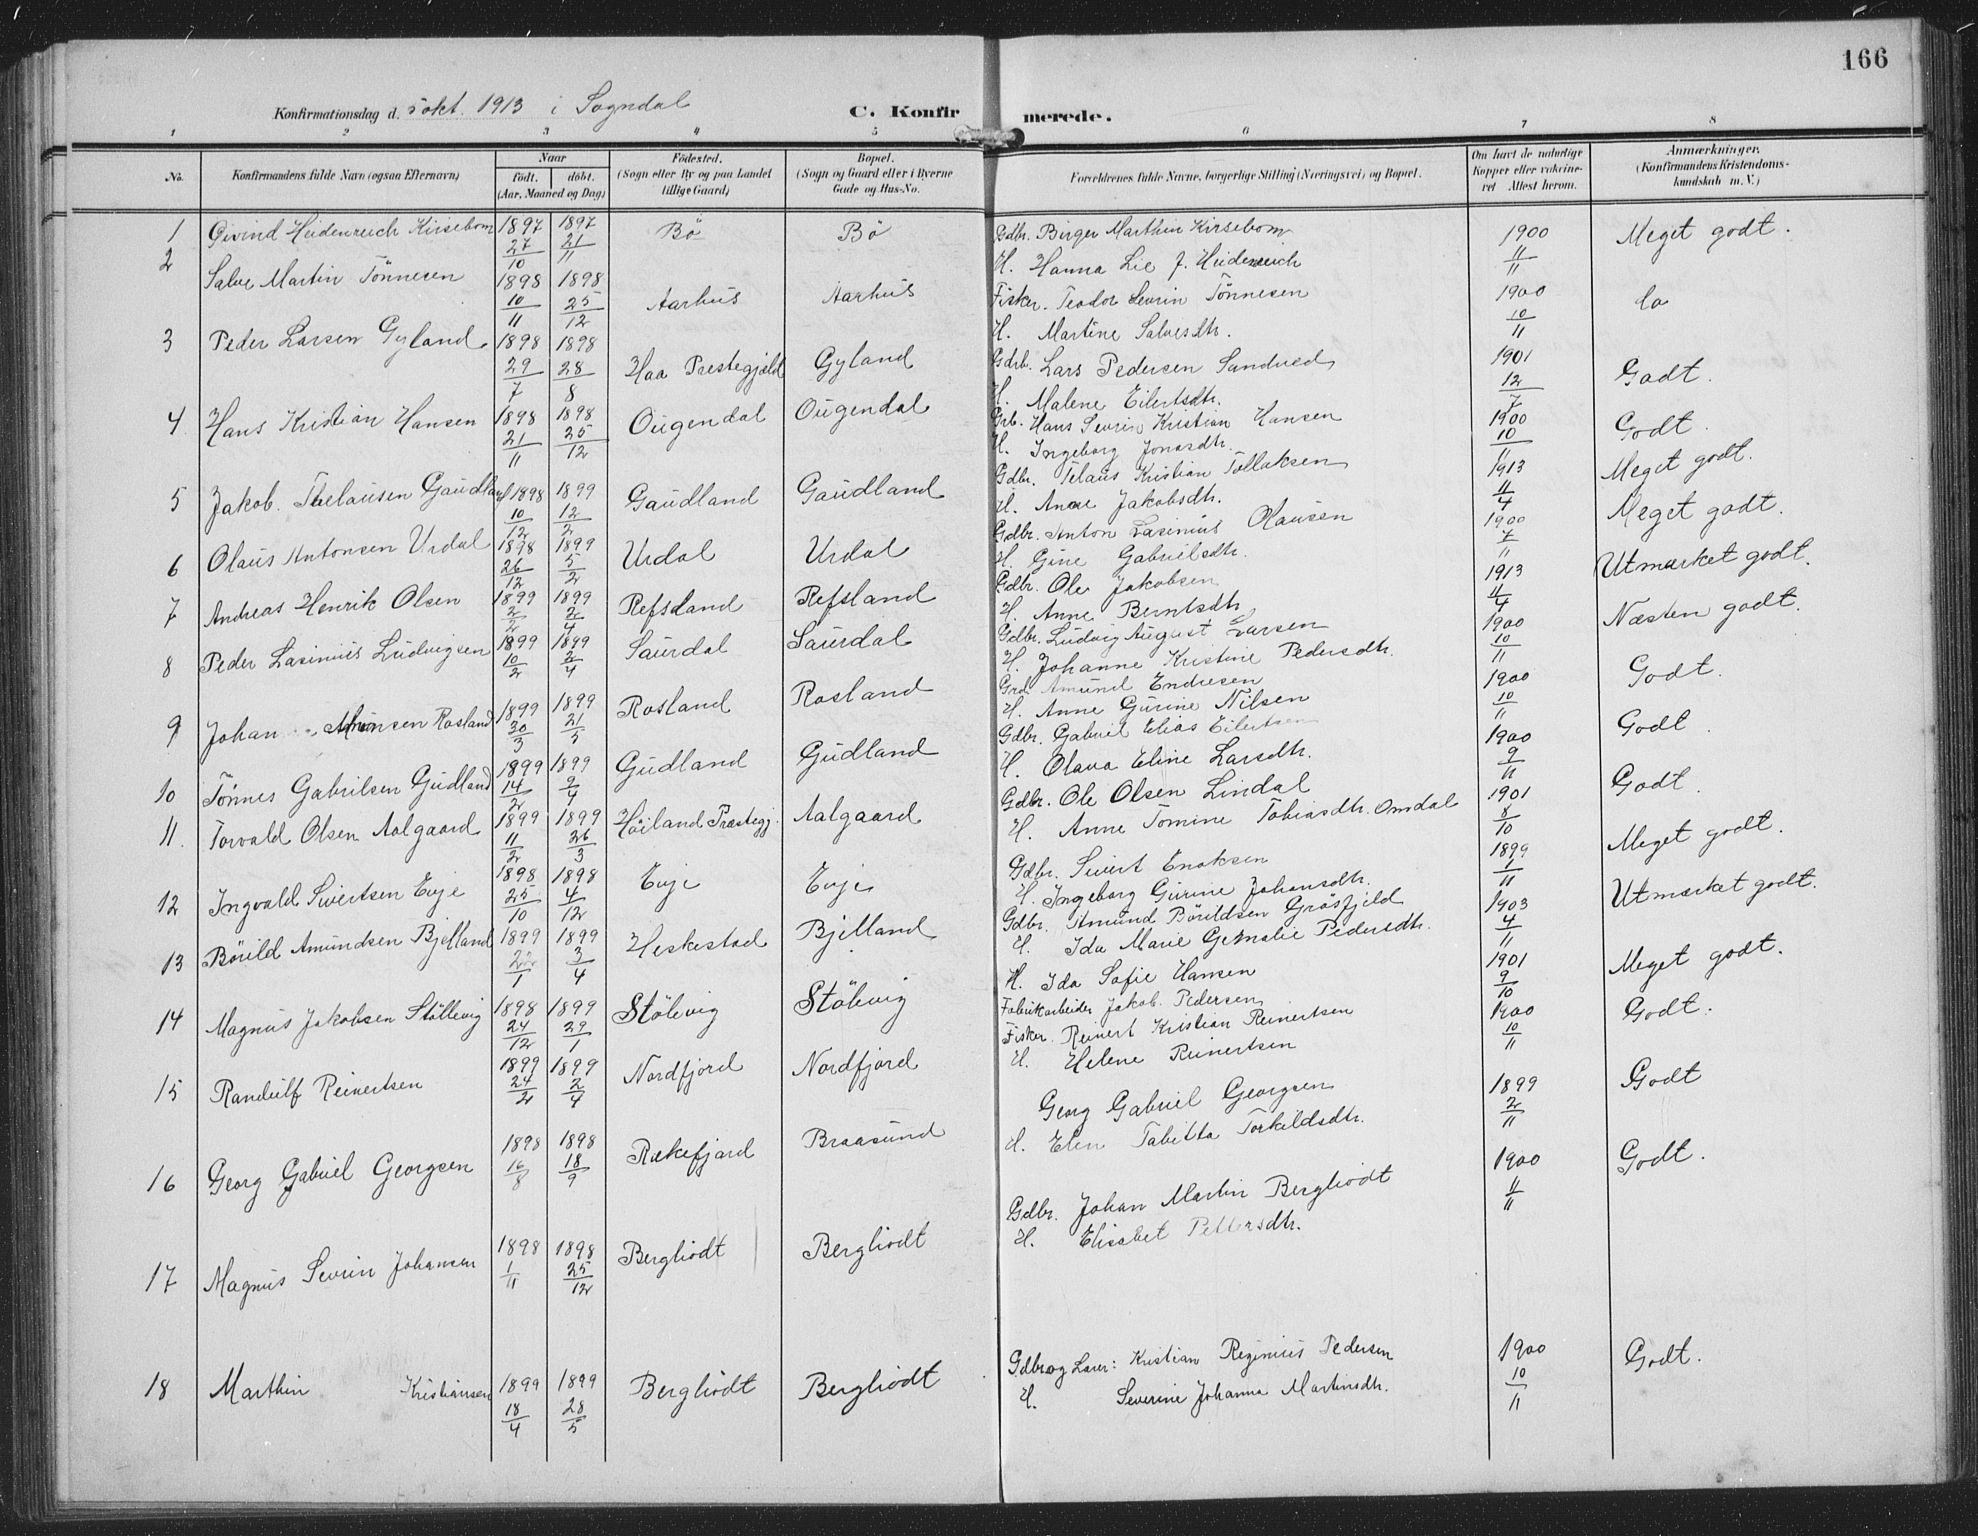 166
Konfirmationsdag d. 5 okt. 1913 i Sogndal
C. Konfirmerede.
1 2 3 4 5 6 7 8
No. Konfirmandens fulde Navn (ogsaa Efternavn) Naar født. døbt. (Aar, Maaned og Dag) Fødested. (Sogn eller By og paa Landet tillige Gaard) Bopæl. (Sogn og Gaard eller i Byerne Gade og Hus-No. Forældrenes fulde Navne, borgerlige Stilling (Næringsvei) og Bopæl. Om havt de naturlige Kopper eller vakcineret Attest herom. Anmærkninger. (Konfirmandens Kristendomskundskab m. V.)
1 Øivind Heidenreich Kirsebom 1897 27/10 1897 21/11 Bö Bö Gdbr. Birger Marthin Kirsebom 1900 11/11 Meget godt.
H. Hanna Lie f. Heidenreich
2 Salve Martin Tönnesen 1898 10/11 1898 25/12 Aarhus Aarhus Fisker. Teodor Sevrin Tönnesen 1900 10/11 do
H. Martine Salvesdtr.
3 Peder Larsen Gyland 1898 29/7 1898 28/8 Haa Prestegjæld Gyland Gdrb. Lars Pedersen Sandved 1901 12/7 Godt.
H. Malene Eilertsdtr.
4 Hans Kristian Hansen 1898 21/11 1898 25/12 Ougendal Ougendal Grb. Hans Sevrin Kristian Hansen 1900 10/11 Godt.
H. Ingeborg Jonasdtr.
5 Jakob. Thelausen Gaudland 1898 10/12 1899 12/2 Gaudland Gaudland Gdbr. Telaus Kristian Tollaksen 1913 11/4 Meget godt.
H. Anne Jakobsdtr.
6 Olaus Antonsen Urdal 1898 26/12 1899 5/2 Urdal Urdal Gdbr. Anton Lasinius Olausen 1900 7/11 Meget godt.
H. Gine Gabrielsdtr.
7 Andreas Henrik Olsen 1899 2/2 1899 2/4 Refsland Refsland Gdbr. Ole Jakobsen 1913 11/4 Utmærket godt.
H. Anne Berntsdtr
8 Peder Lasinius Ludvigsen 1899 10/2 1899 2/4 Saurdal Saurdal Gdbr. Ludvig August Larsen 1900 10/11 Næsten godt.
H. Johanne Kristine Pedersdtr.
9 Johan Rosland 1899 30/3 1899 21/5 Rosland Rosland Amund Endresen 1900 10/11 Godt.
H. Anne Gurine Nilsen
10 Tönnes Gabrielsen Gudland 1899 14/2 1899 9/4 Gudland Gudland Gdbr. Gabriel Elias Eilertsen 1900 9/11 Godt.
H. Olava Eline Larsdtr.
11. Torvald Olsen Aalgaard 1899 11/2 1899 26/3 Höiland Præstegj. Aalgaard Gdbr. Ole Olsen Lindal 1901 8/10 Godt.
H. Anne Tomine Tobiasdtr. Omdal
12 Ingvald Sivertsen Evje 1898 25/10 1898 4/12 Evje Evje Gdbr. Sivert Enoksen 1899 1/11 Meget godt.
H. Ingeborg Gurine Johansdtr.
13 Börild Amundsen Bjelland 1899 22/1 1899 3/4 Heskestad Bjelland Gdbr. Amund Börildsen Grösfjeld 1903 4/11 Utmærket godt.
H. Ida Marie Pedersdtr.
14 Magnus Jakobsen Stöllevig 1898 24/12 1899 29/1 Stölevig Stölevig H. Ida Sofie Hansen 1901 9/10 Meget godt.
Fabrikarbeider Jakob. Pedersen
15 Randulf Reinertsen 1899 24/2 1899 2/4 Nordfjord Nordfjord Fisker. Reinert Kristian Reinertsen 1900 10/11 Godt.
H. Helene Reinertsen
16 Georg Gabriel Georgsen 1898 16/8 1898 18/9 Rækefjord Braasund Georg Gabriel Georgsen 1899 2/11 Godt
H. Elen Tabitta Torkildsdtr.
17 Magnus Sevrin Johansen 1898 1/11 1898 25/12 Bergliodt Bergliodt Gdbr. Johan Martin Bergliodt 1900 11/11 Godt.
H. Elisabet Pettersdtr.
18 Marthin Kristiansen 1899 18/4 1899 28/5 Bergliodt Bergliodt Gdbr og Lærer: Kristian Reginius Pedersen 1900 10/11 Godt.
H. Severine Johanna Martinsdtr.